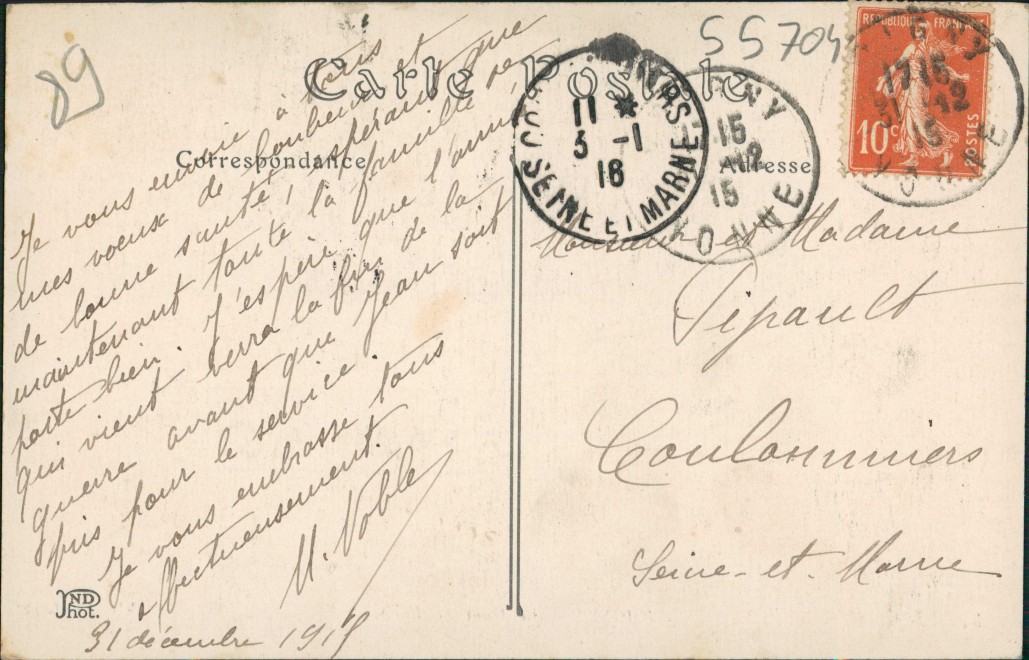 55704
89
Carte Postale
Correspondance
Adresse
Je vous envoie à tous
mes voeux de bonheur et
de bonne santé, espérant que
maintenant toute la famille se
porte bien. J'espère que l'année
qui vient verra la fin de la
guerre avant que Jean soit
pris pour le service.
Je vous embrasse tous
affectueusement.
M. Noble
31 décembre 1915
ND
Phot.
Monsieur et Madame
Pipault
Coulommiers
Seine-et-Marne
11 *
3 -1
16
SEINE ET MARNE
15
12
15
YONNE
IGNY
17 15
31 12
15
YONNE
REPUBLIQUE FRANÇAISE
10c
POSTES